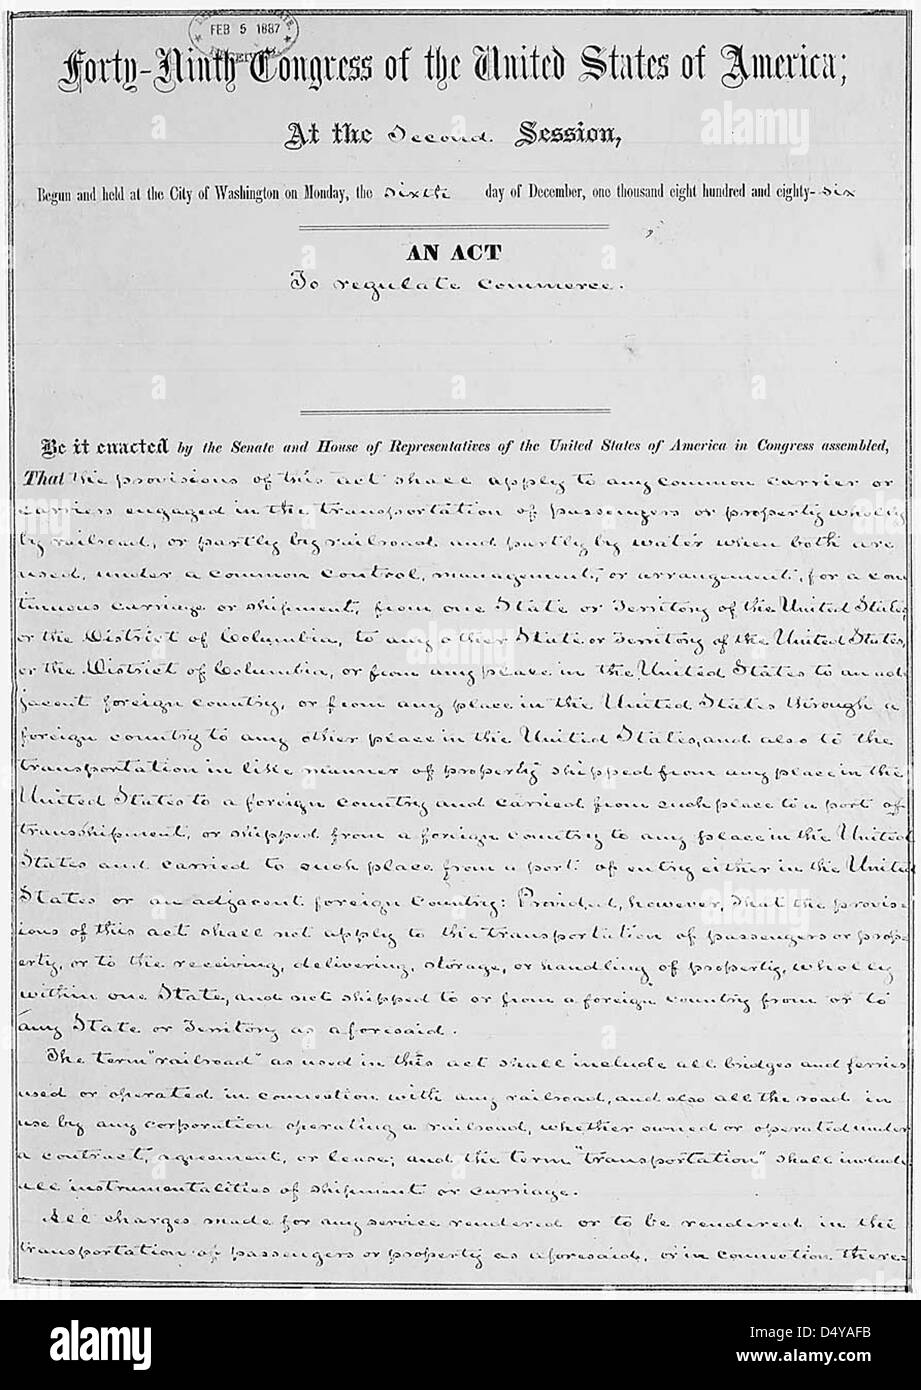 FEB 5 1887
Forty-Ninth Congress of the United States of America;
At the Second Session,
Begun and held at the City of Washington on Monday, the sixth day of December, one thousand eight hundred and eighty-six
AN ACT
To regulate commerce.
Be it enacted by the Senate and House of Representatives of the United States of America in Congress assembled,
That the provisions of this act shall apply to any common carrier or
carriers engaged in the transportation of passengers or property wholly
by railroad, or partly by railroad and partly by water when both are
used, under a common control, management, or arrangement, for a con
tinuous carriage or shipment, from one State or Territory of the United States,
or the District of Columbia, to any other State or Territory of the United States,
or the District of Columbia, or from any place in the United States to an ad
jacent foreign country, or from any place in the United States through a
foreign country to any other place in the United States, and also to the
transportation in like manner of property shipped from any place in the
United States to a foreign country and carried from such place to a port of
transshipment, or shipped from a foreign country to any place in the United
States and carried to such place from a port of entry either in the United
States or an adjacent foreign country: Provided, however, That the provis-
ions of this act shall not apply to the transportation of passengers or prop-
erty, or to the receiving, delivering, storage, or handling of property, wholly
within one State, and not shipped to or from a foreign country from or to
any State or Territory as aforesaid.
The term "railroad" as used in this act shall include all bridges and ferries
used or operated in connection with any railroad, and also all the road in
use by any corporation operating a railroad, whether owned or operated under
a contract, agreement, or lease; and the term "transportation" shall include
all instrumentalities of shipment or carriage.
All charges made for any service rendered or to be rendered in the
transportation of passengers or property as aforesaid, or in connection there-
alamy
Image ID: D4YAFB
www.alamy.com